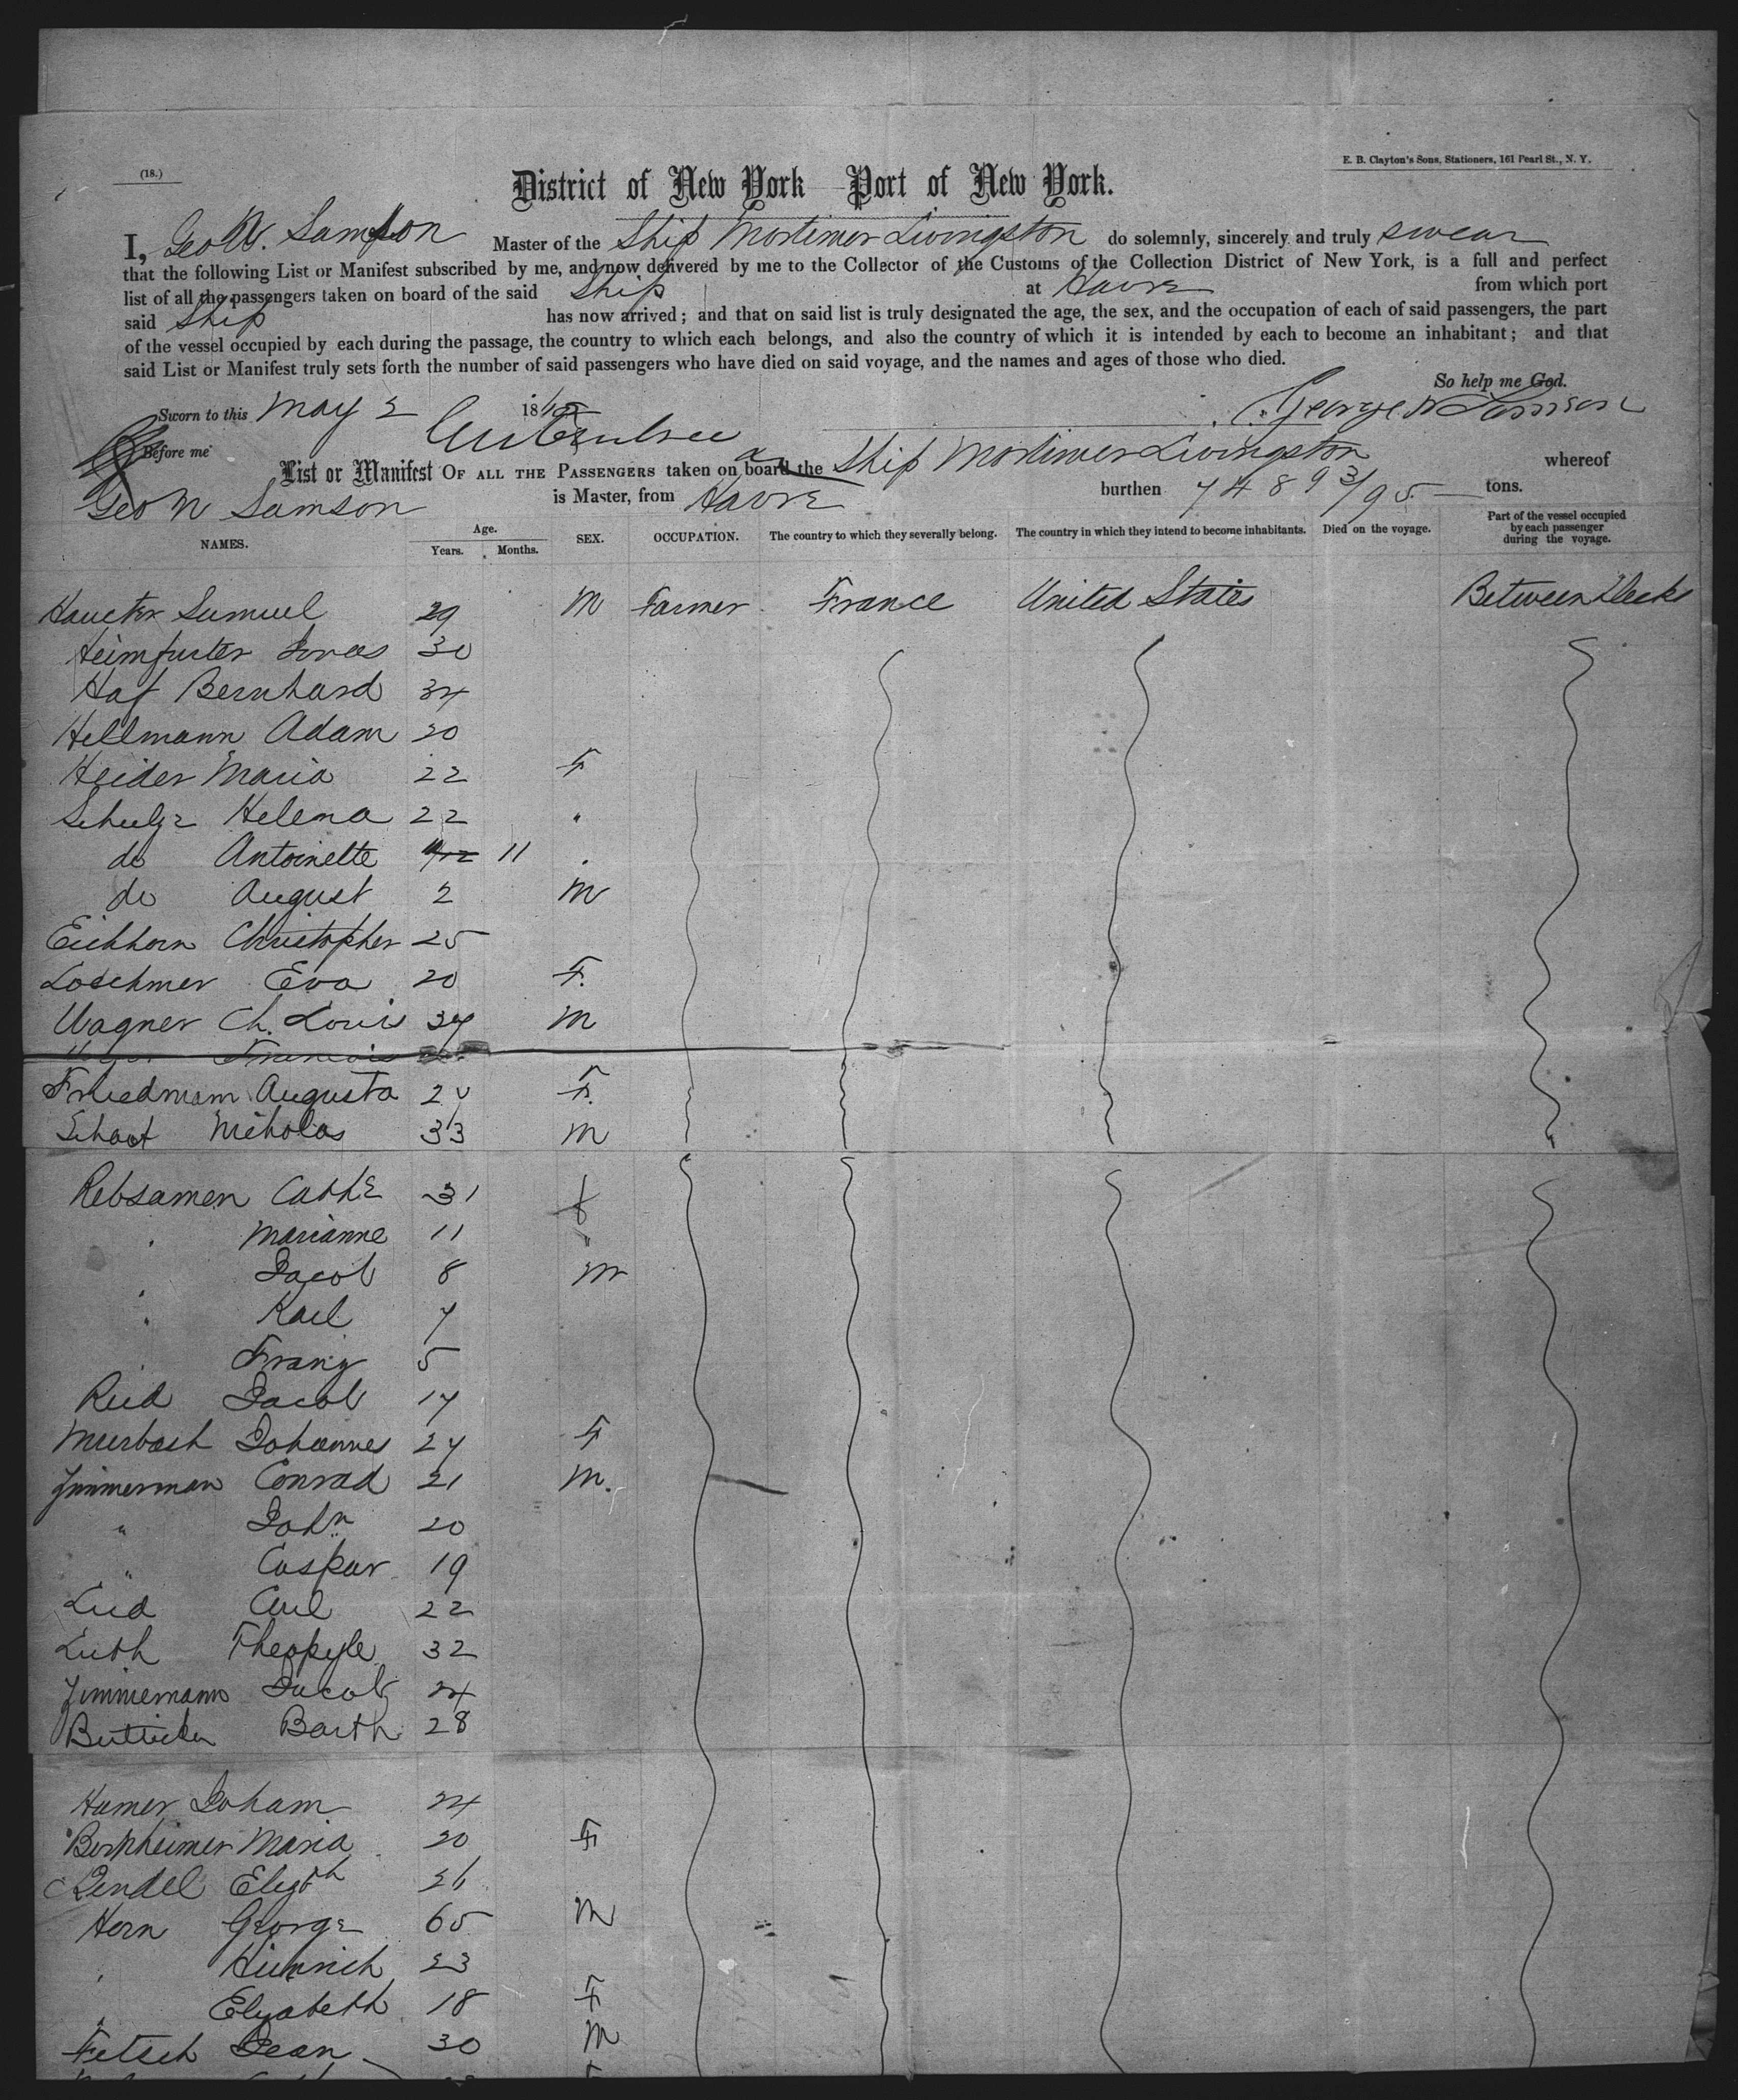 (18.)
E. B. Clayton's Sons, Stationers, 161 Pearl St., N. Y.
District of New York Port of New York.
I, Geo W. Samson Master of the Ship Mortimer Livingston do solemnly, sincerely and truly swear
that the following List or Manifest subscribed by me, and now delivered by me to the Collector of the Customs of the Collection District of New York, is a full and perfect
list of all the passengers taken on board of the said Ship at Havre from which port
said Ship has now arrived; and that on said list is truly designated the age, the sex, and the occupation of each of said passengers, the part
of the vessel occupied by each during the passage, the country to which each belongs, and also the country of which it is intended by each to become an inhabitant; and that
said List or Manifest truly sets forth the number of said passengers who have died on said voyage, and the names and ages of those who died.
So help me God.
Sworn to this May 2 18
George W Samson
Before me
List or Manifest OF ALL THE PASSENGERS taken on board the Ship Mortimer Livingston whereof
Geo W Samson is Master, from Havre burthen 748 93/95 tons.
NAMES. Age. Years. Months. SEX. OCCUPATION. The country to which they severally belong. The country in which they intend to become inhabitants. Died on the voyage. Part of the vessel occupied by each passenger during the voyage.
Samuel 29 M Farmer France United States Between Decks
30
Haf Bernhard 34
Hellmann Adam 20
Heider Maria 22 F
Schulze Helena 22 "
do Antoinette 11/12 11 "
do August 2 M
Eichhorn Christopher 25
Loschmer Eva 20 F.
Wagner Ch. Louis 37 M
Francois
Friedmam Augusta 20 F.
Schaat Nicholas 33 M
Rebsamen Cathe 31 f
" Marianne 11 "
" Jacob 8 M
" Karl 7
" Franz 5
Ried Jacob 17
Murbach Johannes 27 F
Zimmerman Conrad 21 M.
" John 20
" Caspar 19
Lud Carl 22
Luth Theopyle 32
Zimmermann Jacob 24
Butticker Barth. 28
Hamer Joham 24
Berkheimer Maria 20 F
Rendel Elizth 26
Horn George 65 M
" Heinrich 23
" Elyabeth 18 F
Fetsch Jean 30 M